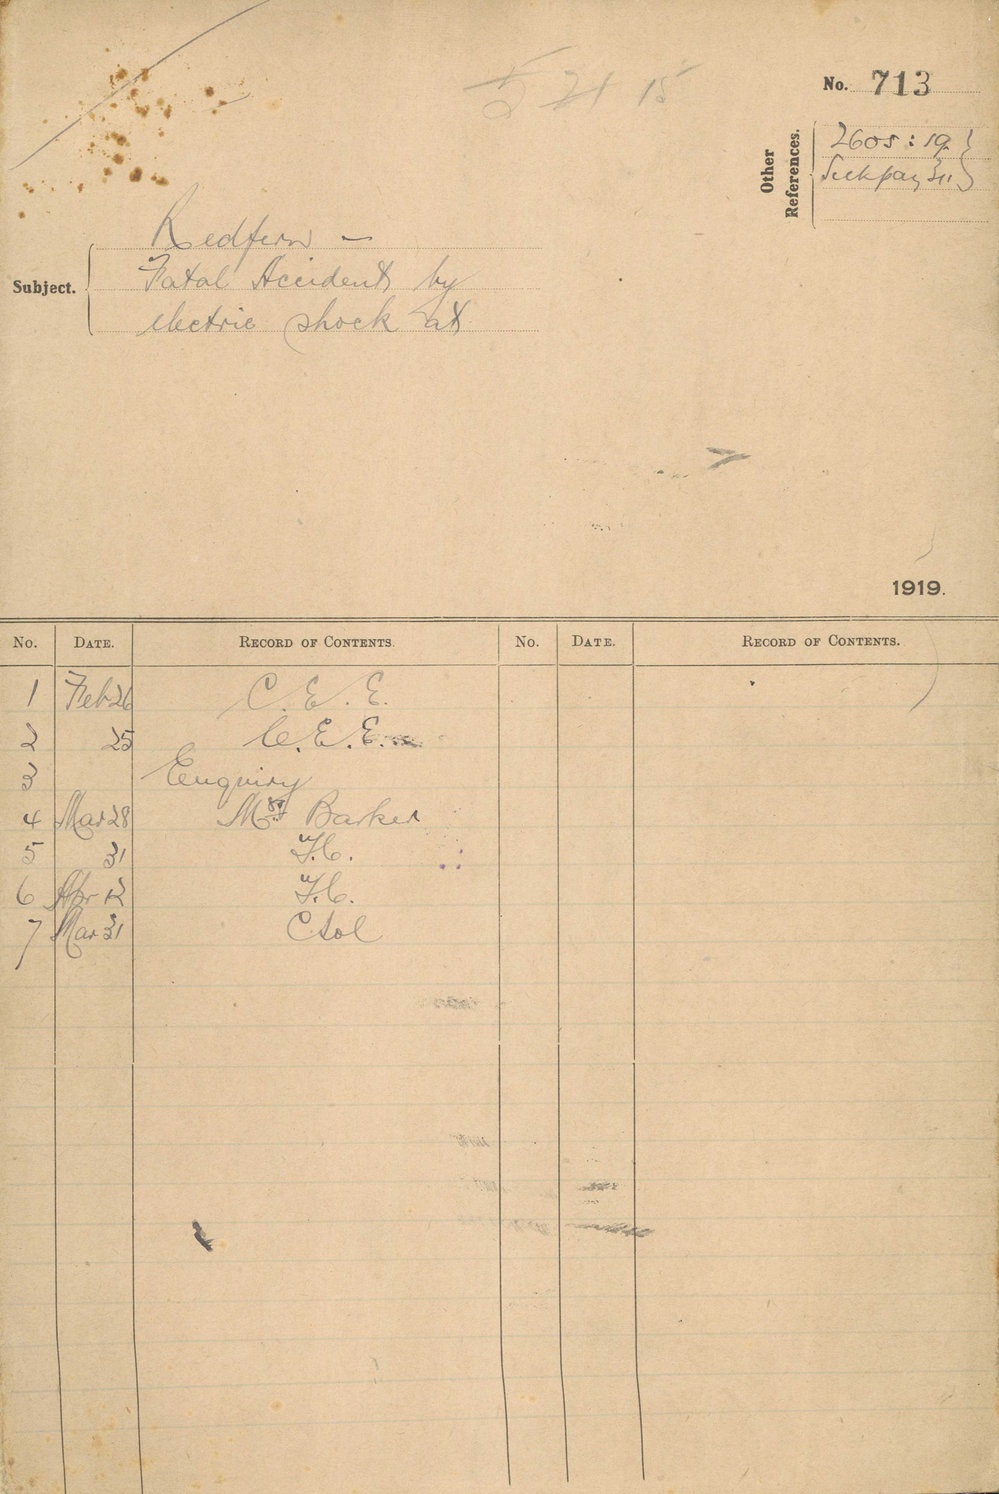 5 21 15
No. 713
Other References.
2605 : 19
Sickpay
Redfern —
Subject.
Fatal Accident by
electric shock at
1919.
No. DATE. RECORD OF CONTENTS. No. DATE. RECORD OF CONTENTS.
1 Feb 26 C. E. E.
2 25 C. E. E.
3 Enquiry
4 Mar 28 Barker
5 31
6 Apr 12
7 Mar 31 C Sol